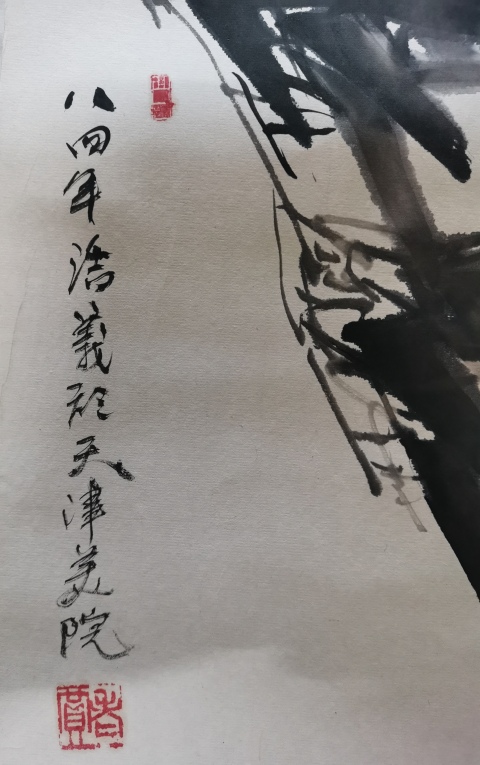 八四年浩義於天津美院
老賈